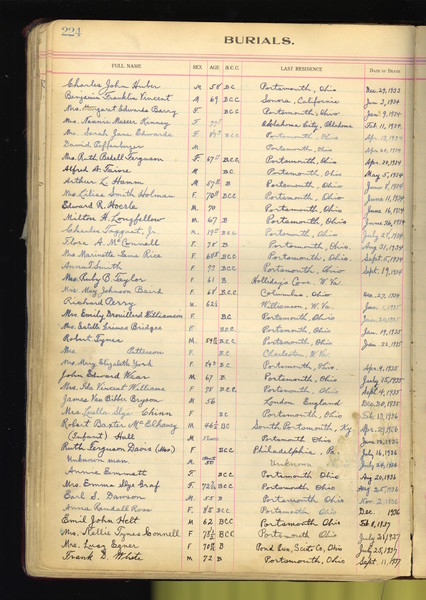 224
BURIALS.
FULL NAME SEX. AGE B.C.C. LAST RESIDENCE DATE OF DEATH
Charles John Huber M 58 BC Portsmouth, Ohio Dec 29, 1933
Benjamin Franklin Vincent M 69 BCC Sonora, California Jan 3, 1934
Mrs. Margaret Edwards Barry F BCC Portsmouth, Ohio Jan 9, 1934
Mrs. Nannie Messer Kinney F Oklahoma City, Oklahoma Feb 11, 1934
Mrs. Sarah Jane Edwards F BCC Portsmouth, Ohio 1934
David M Portsmouth, Ohio Apr 20, 1934
Mrs. Ruth Bedell Ferguson F BCC Portsmouth, Ohio Apr 20, 1934
Alfred A. M BC Portsmouth, Ohio May 5, 1934
Arthur L. Hamm M B Portsmouth, Ohio June 8, 1934
Mrs. Lillie Smith Holman F BCC Portsmouth, Ohio June 11, 1934
Edward R. Hoerle M. 70 Portsmouth, Ohio June 16, 1934
Milton H. Longfellow M. 67 B Portsmouth, Ohio June 26, 1934
Charles Taggart, Jr. M. BCC Portsmouth, Ohio July 1934
Flora A. McConnall F. 75 B Portsmouth, Ohio. Aug 31, 1934
Mrs Marinette Gunn Rice F. BCC Portsmouth, Ohio Sept. 5, 1934
Anna T. Smith F 77 BCC Portsmouth, Ohio Sept. 19, 1934
Mrs. Ruby B. Taylor F 61 B Hollidays Cove, W. Va.
Mrs. May Johnson Baird F. 68 BCC Columbus, Ohio Dec. 27, 1934
Richard Perry M. Williamson, W. Va. 1935
Mrs. Emily Drouillard Williamson F. BC Portsmouth, Ohio 1935
Mrs. Estelle Grimes Bridges F. BCC Portsmouth, Ohio Jan. 19, 1935
Robert Tynes M. BCC Portsmouth, Ohio Jan. 22, 1935
Mrs. Patterson F. BC Charleston, W. Va.
Mrs. Mary Elizabeth York F. BC Portsmouth, Ohio. Apr. 9, 1935
John Edward Wear M. 67 B Portsmouth, Ohio. July 25, 1935
Mrs. Ida Vincent Williams F. 75 BCC. Portsmouth, Ohio. Sept. 19, 1935
James Van Bibber Bryson M 56 London England Dec. 20, 1935
Mrs. Luella Slye Chinn F. BC Portsmouth, Ohio Feb 13, 1936
Robert Baxter McElhaney M. 46½ BC South Portsmouth, Ky Apr. 2, 1936
(Infant) Hall M Portsmouth Ohio 1936
Ruth Ferguson Davis (Mrs) F BCC Philadelphia. Pa. July 16, 1936
Unknown man M about 50 Unknown July 24, 1936
Annie Emmett F BCC Portsmouth Ohio Aug 20, 1936
Mrs. Emma Slye Graf F. BCC Portsmouth Ohio Aug. 25, 1936
Earl S. Dawson M. 55 B Portsmouth Ohio Nov. 2, 1936
Anna Randall Ross F. 85 BCC Portsmouth Ohio Dec. 1936
Emil John Helt M 62 BCC Portsmouth Ohio Feb 8, 1937
Mrs. Nellie Tynes Connell F 78½ BCC Portsmouth Ohio July 21, 1937
Mrs. Lucy Egner F 70 B Pond Run, Scioto Co, Ohio July 25, 1937
Frank D. White M 72 B Portsmouth, Ohio Sept. 11, 1937